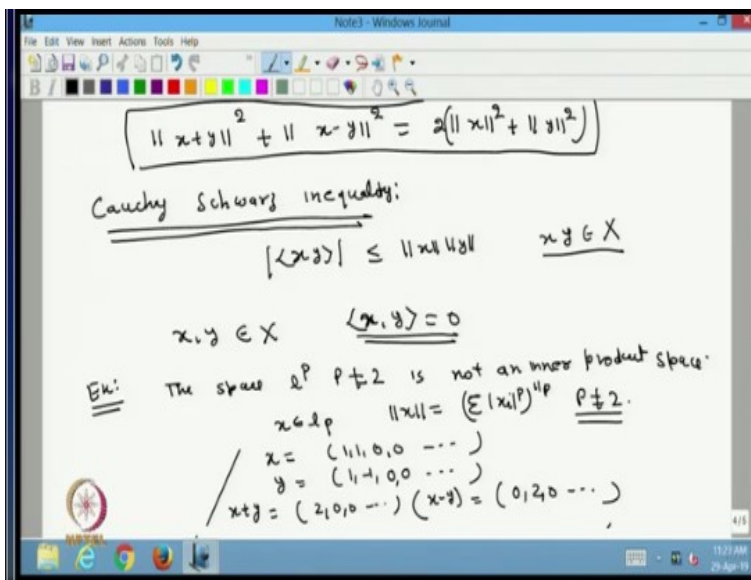 Note3 - Windows Journal
File Edit View Insert Actions Tools Help
B I
‖x+y‖² + ‖x-y‖² = 2(‖x‖² + ‖y‖²)
Cauchy Schwarz inequality:
|<x y>| ≤ ‖x‖ ‖y‖ x y ∈ X
x, y ∈ X <x, y> = 0
Ex: The space l^p p ≠ 2 is not an inner product space.
x ∈ l_p ‖x‖ = (Σ |x_i|^p)^{1/p} p ≠ 2.
x = (1, 1, 0, 0 ---)
y = (1, -1, 0, 0 ---)
x+y = (2, 0, 0 ---) (x-y) = (0, 2, 0 ---)
NPTEL
4/5
11:23 AM
29-Apr-19